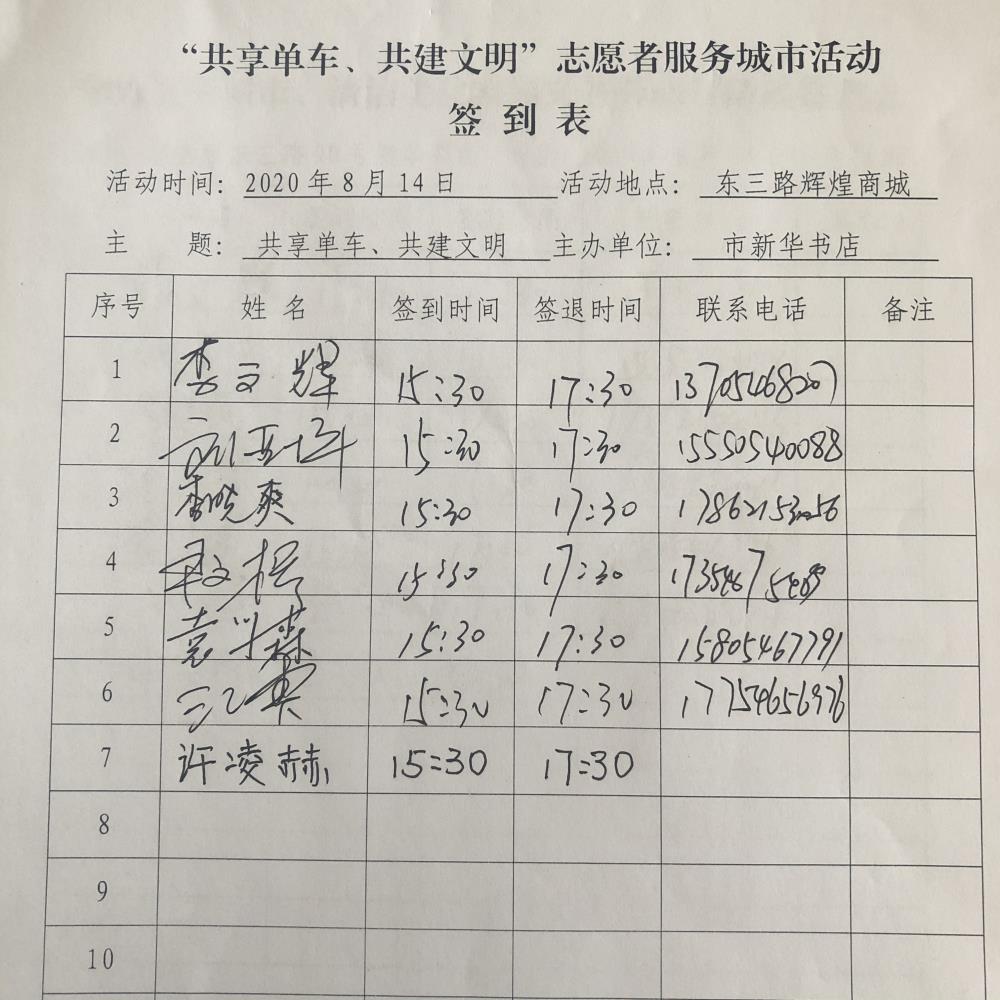 “共享单车、共建文明”志愿者服务城市活动
签到表
活动时间：2020年8月14日 活动地点：东三路辉煌商城
主 题：共享单车、共建文明 主办单位：市新华书店
序号 姓名 签到时间 签退时间 联系电话 备注
1 李文辉 15:30 17:30 13705468207
2 15:30 17:30 15550540088
3 李晓爽 15:30 17:30 17862153256
4 15:30 17:30
5 袁兴森 15:30 17:30 15805467791
6 15:30 17:30 17754656976
7 许凌赫 15:30 17:30
8
9
10